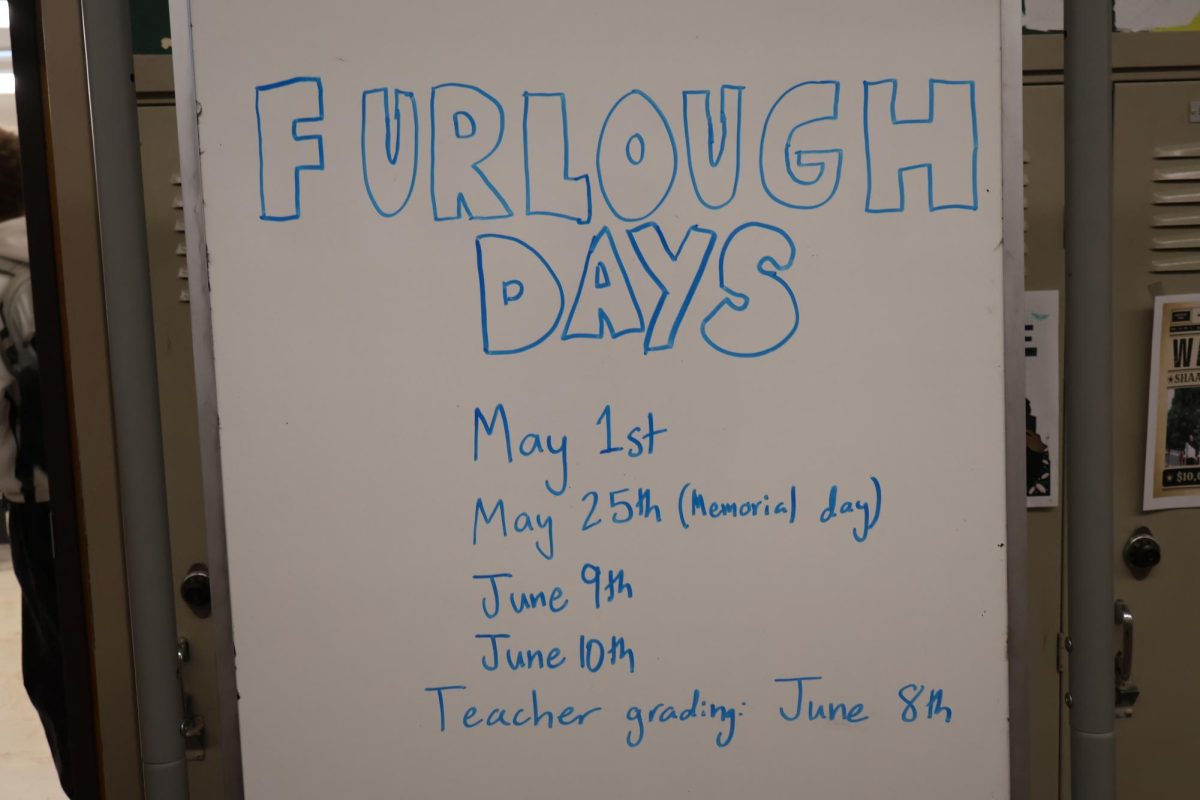 FURLOUGH
DAYS
May 1st
May 25th (Memorial day)
June 9th
June 10th
Teacher grading: June 8th